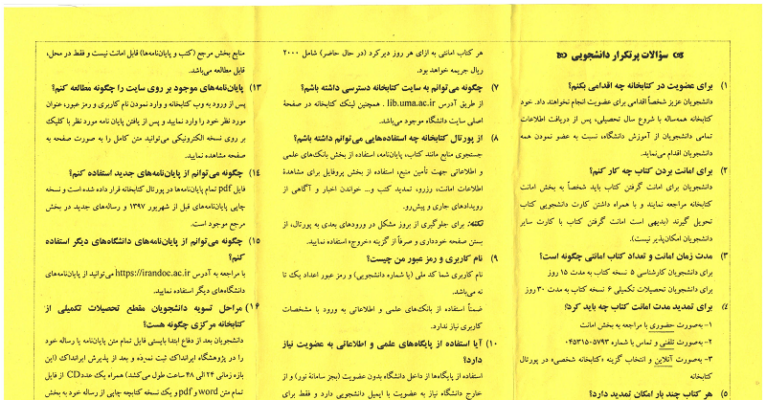 سؤالات پرتکرار دانشجویی
۱) برای عضویت در کتابخانه چه اقدامی بکنم؟
دانشجویان عزیز شخصاً اقدامی برای عضویت انجام نخواهند داد. خود
کتابخانه همه‌ساله با شروع سال تحصیلی، پس از دریافت اطلاعات
تمامی دانشجویان از آموزش دانشگاه، نسبت به عضو نمودن همه
دانشجویان اقدام می‌نماید.
۲) برای امانت بردن کتاب چه کار کنم؟
دانشجویان برای امانت گرفتن کتاب باید شخصاً به بخش امانت
کتابخانه مراجعه نمایند و با همراه داشتن کارت دانشجویی کتاب
تحویل گیرند (بدیهی است امانت گرفتن کتاب با کارت سایر
دانشجویان امکان‌پذیر نیست).
۳) مدت زمان امانت و تعداد کتاب امانتی چگونه است؟
برای دانشجویان کارشناسی ۵ نسخه کتاب به مدت ۱۵ روز
برای دانشجویان تحصیلات تکمیلی ۶ نسخه کتاب به مدت ۳۰ روز
۴) برای تمدید مدت امانت کتاب چه باید کرد؟
۱- به‌صورت حضوری با مراجعه به بخش امانت
۲- به‌صورت تلفنی و تماس با شماره ۰۴۵۳۱۵۰۵۷۹۳
۳- به‌صورت آنلاین و انتخاب گزینه «کتابخانه شخصی» در پورتال
کتابخانه
۵) هر کتاب چند بار امکان تمدید دارد؟
هر کتاب امانتی به ازای هر روز دیرکرد (در حال حاضر) شامل ۲۰۰۰
ریال جریمه خواهد بود.
۷) چگونه می‌توانم به سایت کتابخانه دسترسی داشته باشم؟
از طریق آدرس lib.uma.ac.ir . همچنین لینک کتابخانه در صفحة
اصلی سایت دانشگاه موجود می‌باشد.
۸) از پورتال کتابخانه چه استفاده‌هایی می‌توانم داشته باشم؟
جستجوی منابع مانند کتاب، پایان‌نامه، استفاده از بخش بانک‌های علمی
و اطلاعاتی جهت تأمین منبع، استفاده از بخش پروفایل برای مشاهدة
اطلاعات امانت، رزرو، تمدید کتب و... خواندن اخبار و آگاهی از
رویدادهای جاری و پیش‌رو.
نکته: برای جلوگیری از بروز مشکل در ورودهای بعدی به پورتال، از
بستن صفحه خودداری و صرفاً از گزینه «خروج» استفاده نمایید.
۹) نام کاربری و رمز عبور من چیست؟
نام کاربری شما کد ملی (یا شماره دانشجویی) و رمز عبور اعداد یک تا
نه می‌باشد.
ضمناً استفاده از بانک‌های علمی و اطلاعاتی به ورود با مشخصات
کاربری نیاز ندارد.
۱۰) آیا استفاده از پایگاه‌های علمی و اطلاعاتی به عضویت نیاز
دارد؟
استفاده از پایگاه‌ها از داخل دانشگاه بدون عضویت (بجز سامانة نور) و از
خارج دانشگاه نیاز به عضویت با ایمیل دانشجویی دارد و فقط برای
منابع بخش مرجع (کتب و پایان‌نامه‌ها) قابل امانت نیست و فقط در محل،
قابل مطالعه می‌باشد.
۱۳) پایان‌نامه‌های موجود بر روی سایت را چگونه مطالعه کنم؟
پس از ورود به وب کتابخانه و وارد نمودن نام کاربری و رمز عبور، عنوان
مورد نظر خود را وارد نمایید و پس از یافتن پایان نامه مورد نظر با کلیک
بر روی نسخه الکترونیکی می‌توانید متن کامل را به صورت صفحه به
صفحه مشاهده نمایید.
۱۴) چگونه می‌توانم از پایان‌نامه‌های جدید استفاده کنم؟
فایل pdf تمام پایان‌نامه‌ها در پورتال کتابخانه قرار داده شده است و نسخه
چاپی پایان‌نامه‌های قبل از شهریور ۱۳۹۷ و رساله‌های جدید در بخش
مرجع موجود است.
۱۵) چگونه می‌توانم از پایان‌نامه‌های دانشگاه‌های دیگر استفاده
کنم؟
با مراجعه به آدرس https://irandoc.ac.ir می‌توانید از پایان‌نامه‌های
دانشگاه‌های دیگر استفاده نمایید.
۱۶) مراحل تسویه دانشجویان مقطع تحصیلات تکمیلی از
کتابخانه مرکزی چگونه هست؟
دانشجویان بعد از دفاع ابتدا بایستی فایل تمام متن پایان‌نامه یا رساله خود
را در پژوهشگاه ایرانداک ثبت نمرده و بعد از پذیرش ایرانداک (این
بازه زمانی ۲۴ الی ۴۸ ساعت طول می‌کشد) همراه یک عدد CD از فایل
تمام متن word و pdf و یک نسخه کتابچه چاپی از رساله خود به بخش